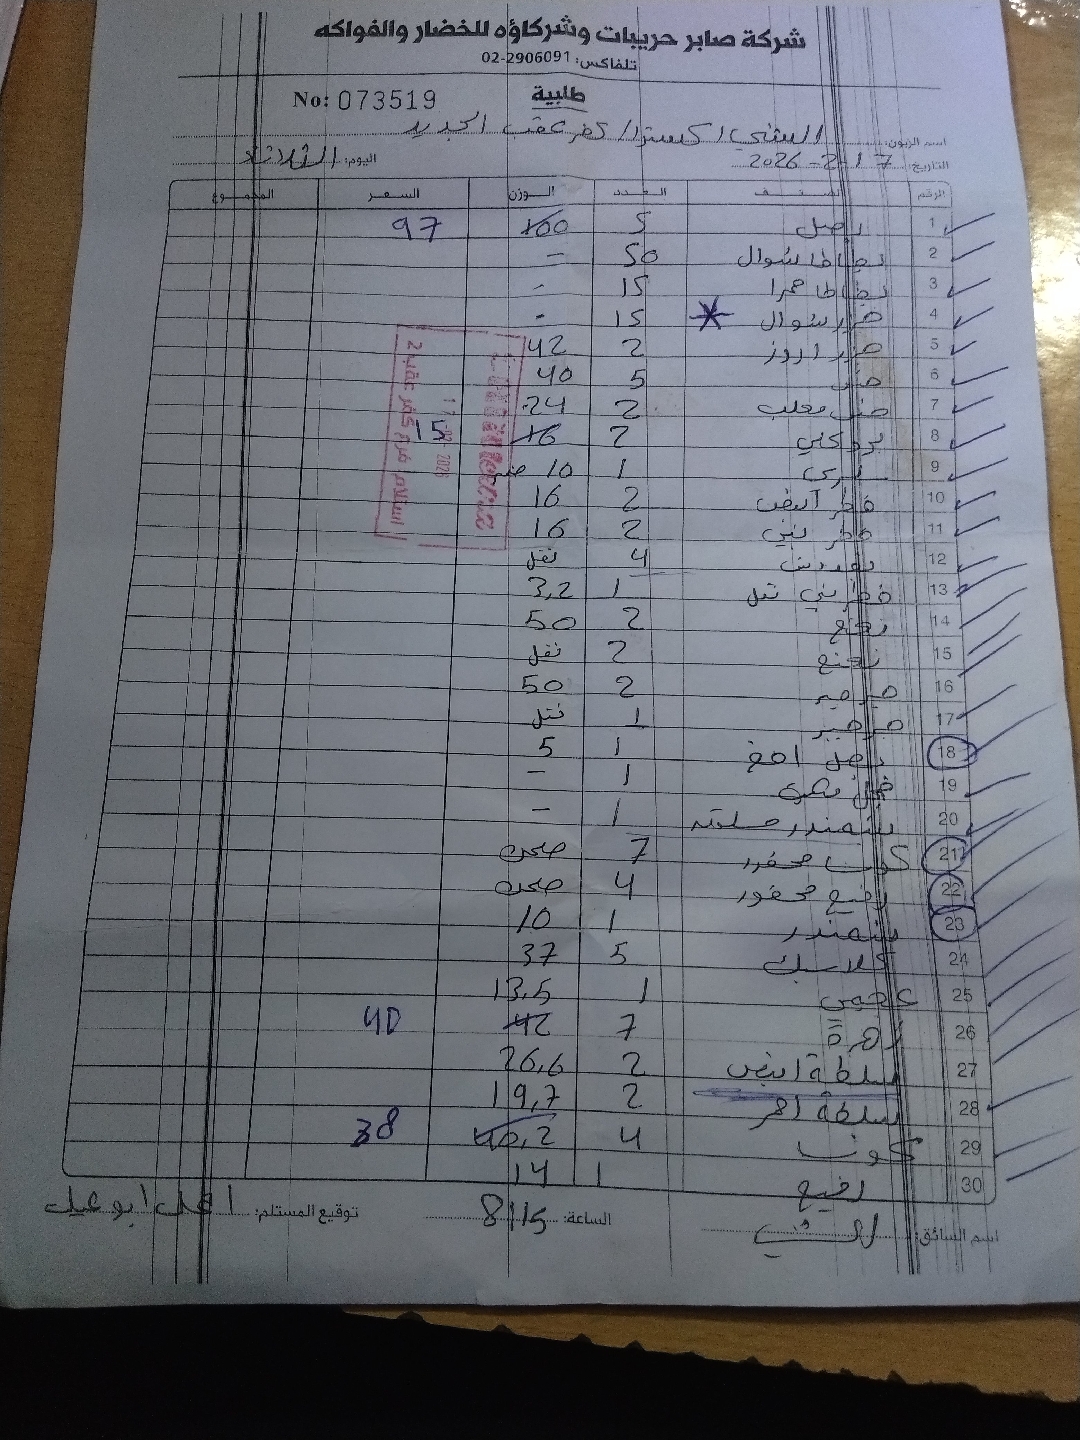 شركة صابر حريبات وشركاؤه للخضار والفواكه
تلفاكس: 02-2906091
No: 073519 طلبية
اسم الزبون: الشني اكسترا / كفر عقب الجديد
التاريخ: 17-2-2026 اليوم: الثلاثاء
الرقم الصنف العدد الوزن السعر المجموع
1 بصل 5 100 97
2 بطاطا شوال 50 -
3 بطاطا حمرا 15 -
4 شوال 15 -
5 2 42
6 5 40
7 معلب 2 24
8 بروكلي 2 16 15
9 1 10
10 فطر ابيض 2 16
11 فطر بني 2 16
12 بقدونس 4 نقل
13 فطر بني 1 3,2
14 نعنع 2 50
15 نعنع 2 نقل
16 جرجير 2 50
17 جرجير 1 نقل
18 بصل اخضر 1 5
19 فجل 1 -
20 شمندر 1 -
21 كوسا محفور 7 صحن
22 رفيع محفور 4 صحن
23 شمندر 1 10
24 كلاسيك 5 37
25 عجمي 1 13,5
26 زهرة 7 42 40
27 سلطة ابيض 2 26,6
28 سلطة احمر 2 19,7
29 كوسا 4 40,2 38
30 رفيع 1 14
اسم السائق: الساعة: 8/15 توقيع المستلم:
استلام فرع كفر عقب 2
17 02 2026